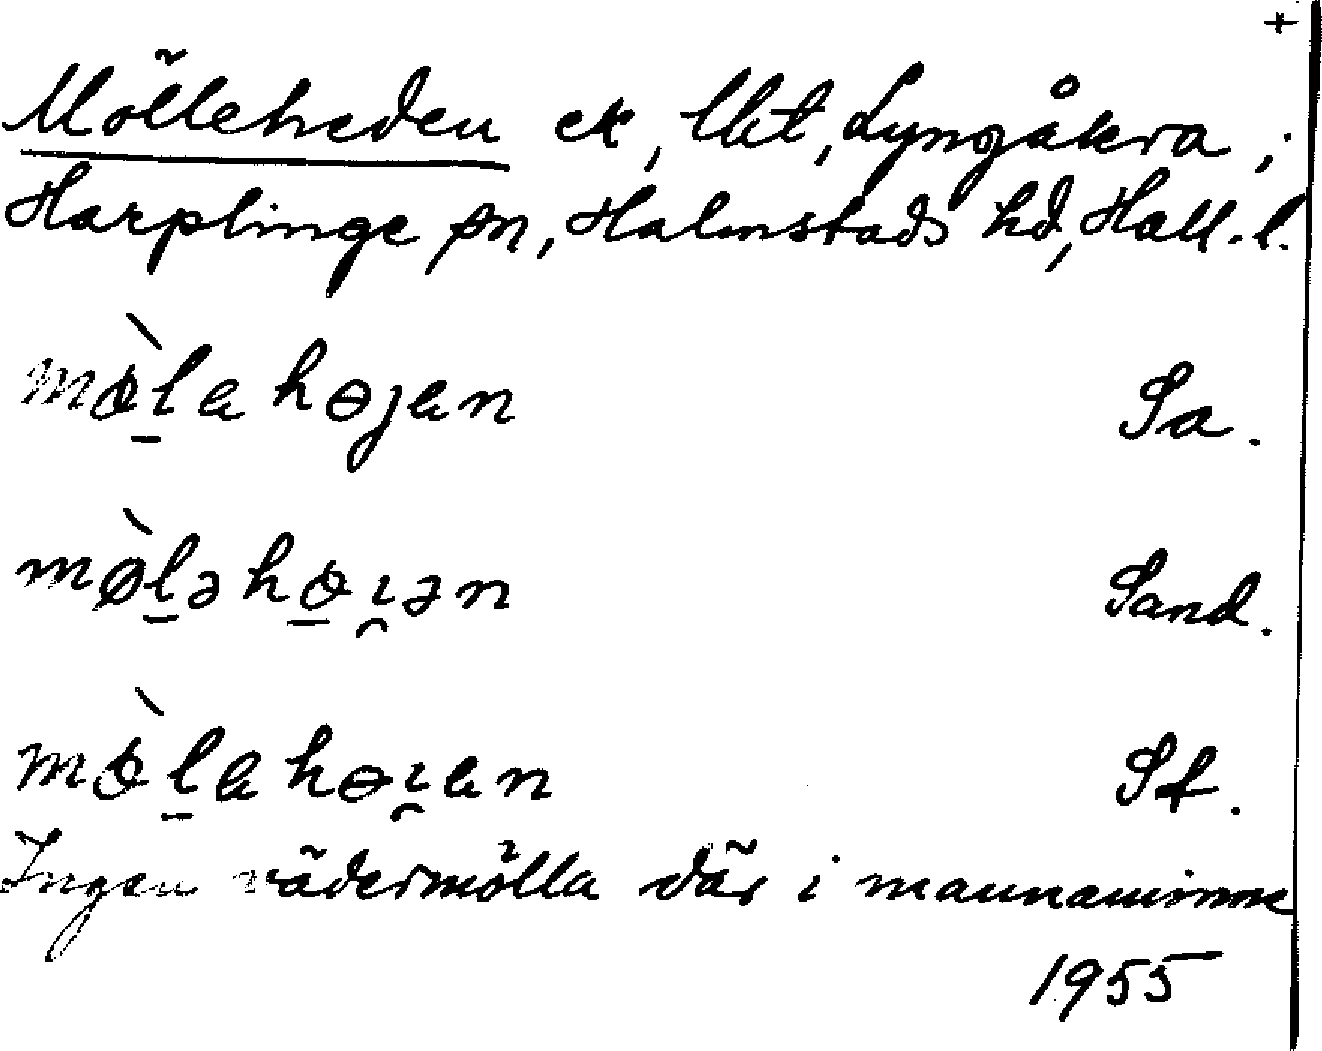 +
Mölleheden ek, Ubt, Lyngåkra,
Harplinge sn, Halmstads hd, Hall. l.
mø̀l̠ahɵjan Sa.
mø̀l̠əhɵ̠ı̯ən Sand.
mø̀l̠ahɵı̯an Sf.
Ingen vädermölla där i mannaminne
1955